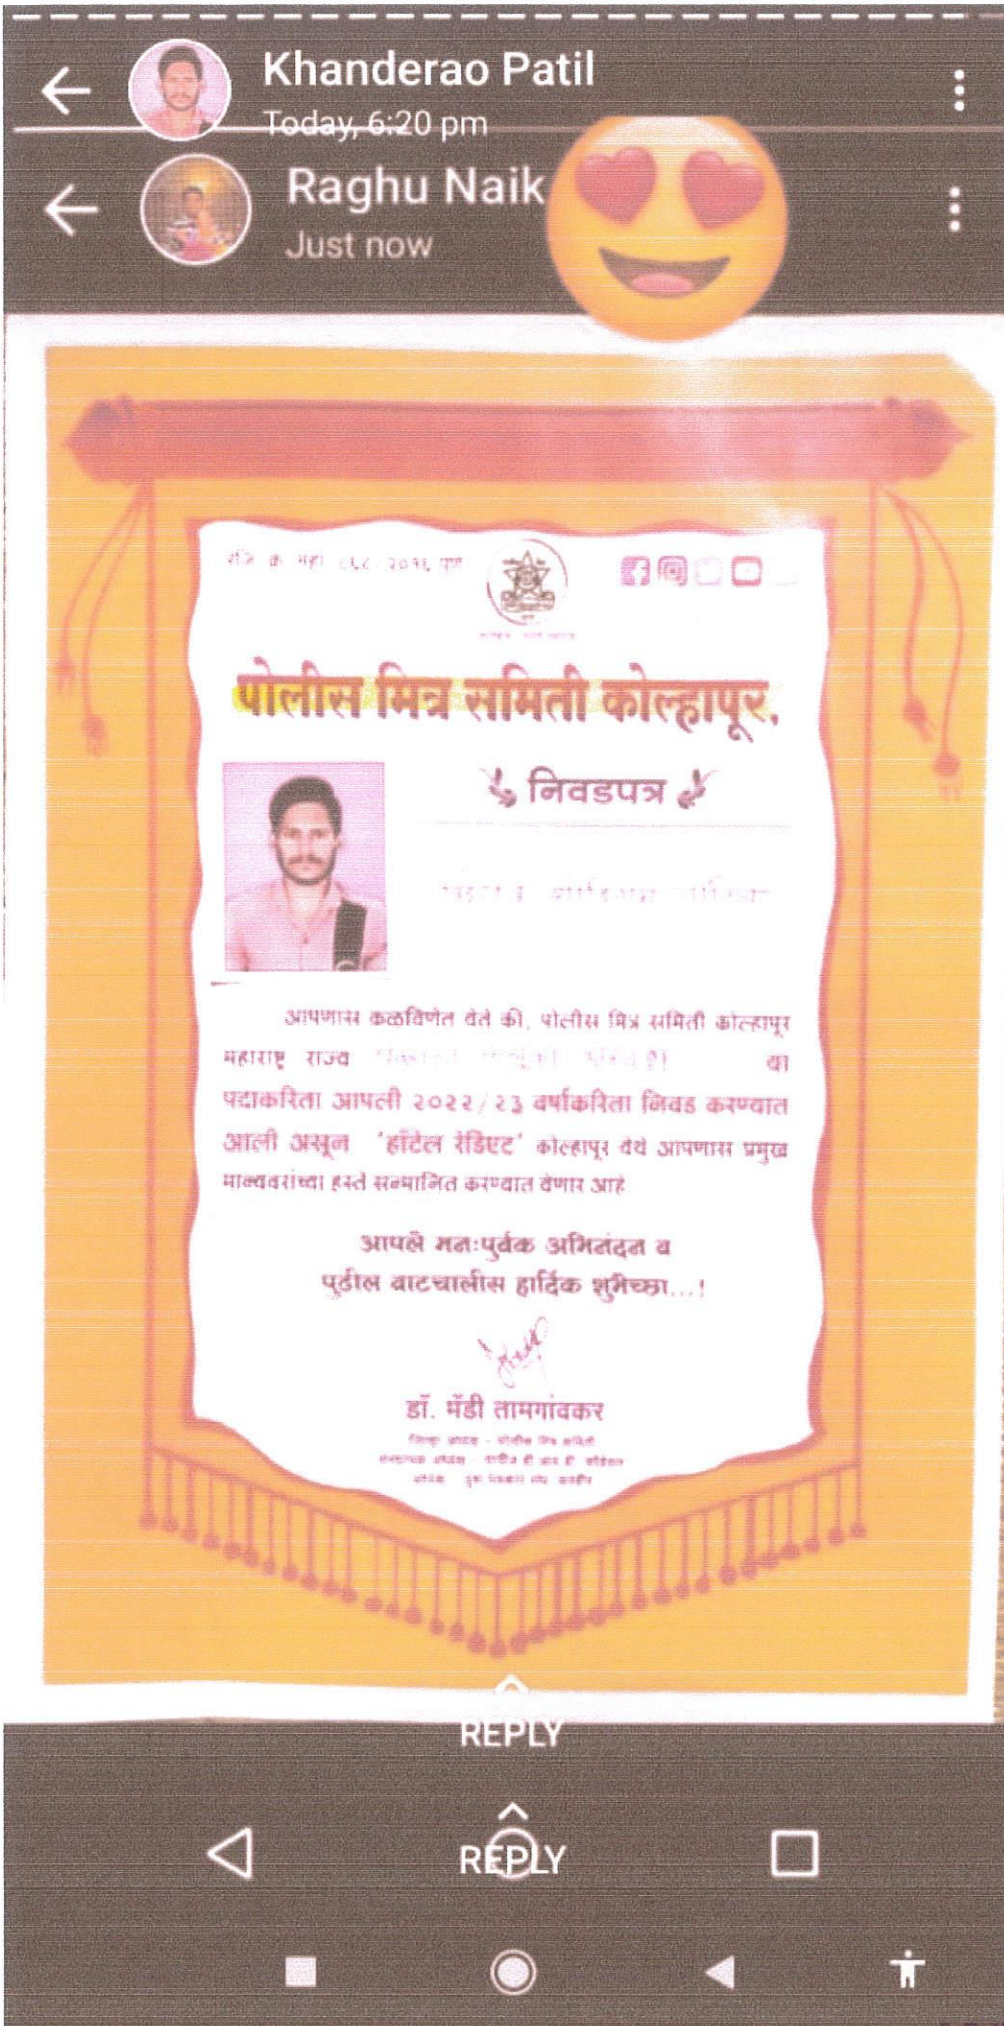 Khanderao Patil
Today, 6:20 pm
Raghu Naik
Just now
रजि क्र महा २०१६ पुणे
पोलीस मित्र समिती कोल्हापूर.
निवडपत्र
आपणास कळविणेत येते की, पोलीस मित्र समिती कोल्हापूर
महाराष्ट्र राज्य या
पदाकरिता आपली २०२२/२३ वर्षाकरिता निवड करण्यात
आली असून 'हॉटेल रेडिएट' कोल्हापूर येथे आपणास प्रमुख
मान्यवरांच्या हस्ते सन्मानित करण्यात येणार आहे
आपले मनःपुर्वक अभिनंदन व
पुढील वाटचालीस हार्दिक शुभेच्छा...!
डॉ. मॅडी तामगांवकर
जिल्हा अध्यक्ष - पोलीस मित्र समिती
REPLY
REPLY